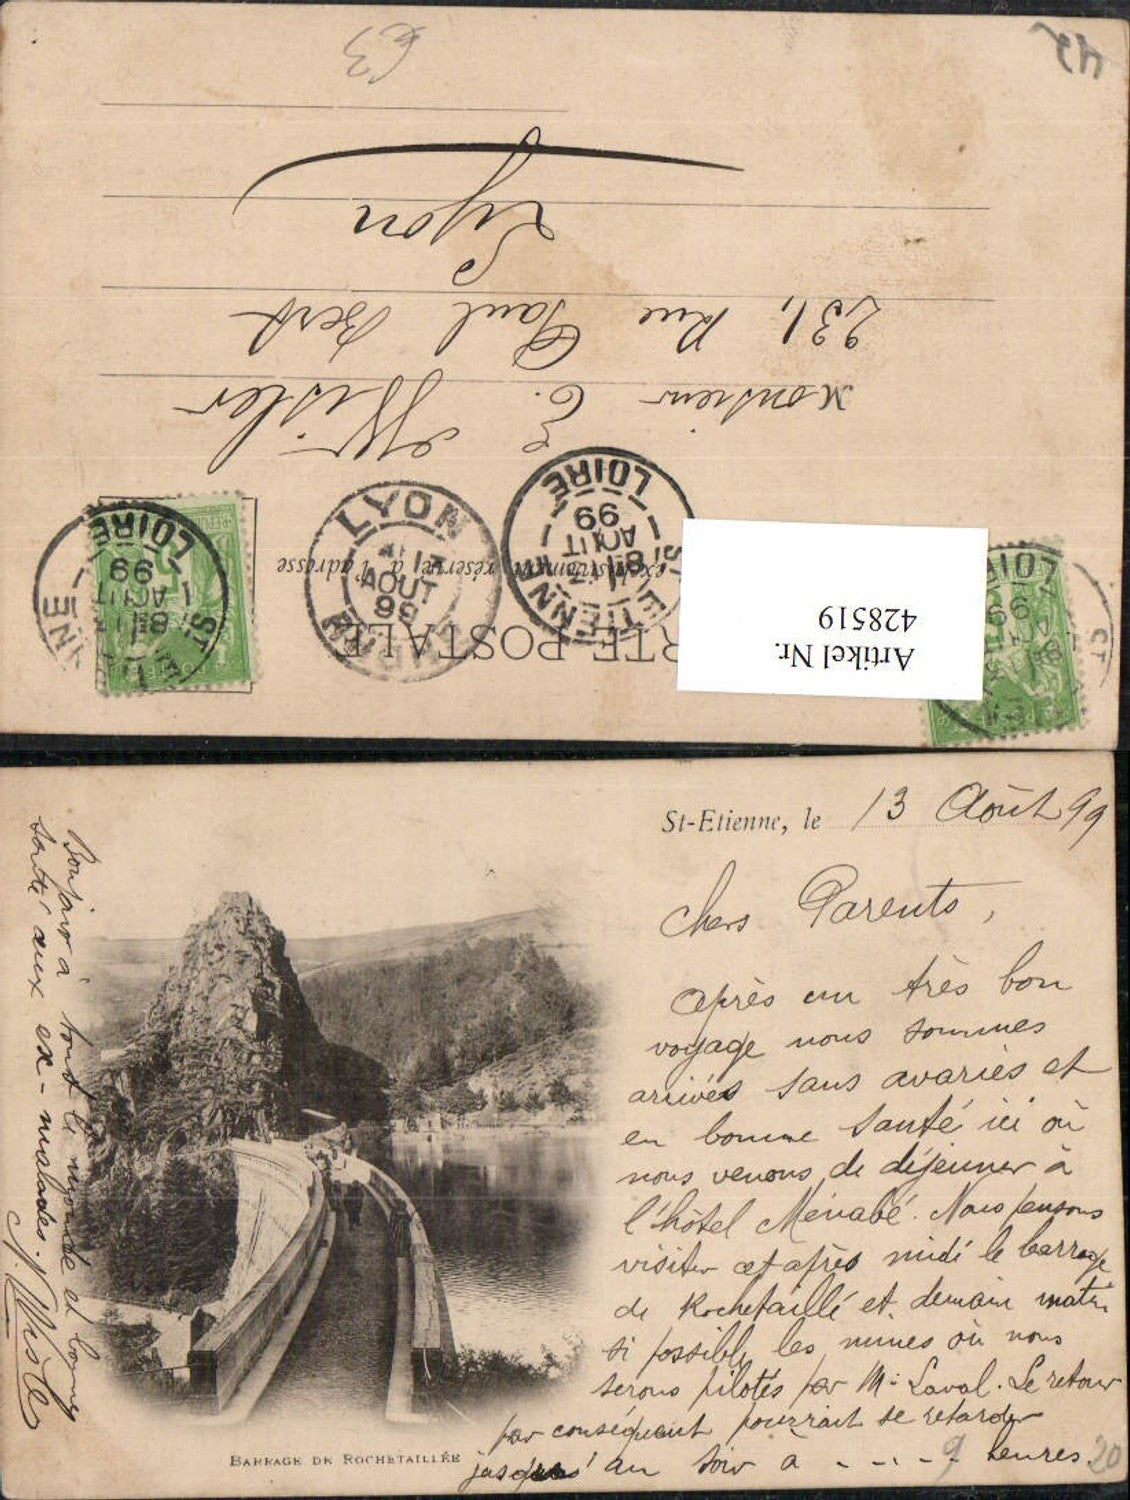 €3
Lyon
231, Rue Paul Bert
Monsieur E. Wisler
ST ETIENNE
LOIRE
8E/13
AOUT
99
LYON
AOUT
99
ST ETIENNE
LOIRE
8E/13
AOUT
99
exclusivement réservé à l'adresse
RTE POSTALE
Artikel Nr.
428519
St-Etienne, le 13 Août 99
Chers Parents,
après un très bon
voyage nous sommes
arrivés sans avaries et
en bonne santé ici où
nous venons de déjeuner à
l'hôtel Ménabé. Nous pensons
visiter cet après midi le barrage
de Rochetaillé et demain matin
si possible les mines où nous
serons pilotés par Mr Laval. Le retour
par conséquent pourrait se retarder
jusqu' au soir à - - - - 9 heures
20
Bonjour à tout le monde et bonne
santé aux ex-malades.
Wisler
BARRAGE DE ROCHETAILLÉE